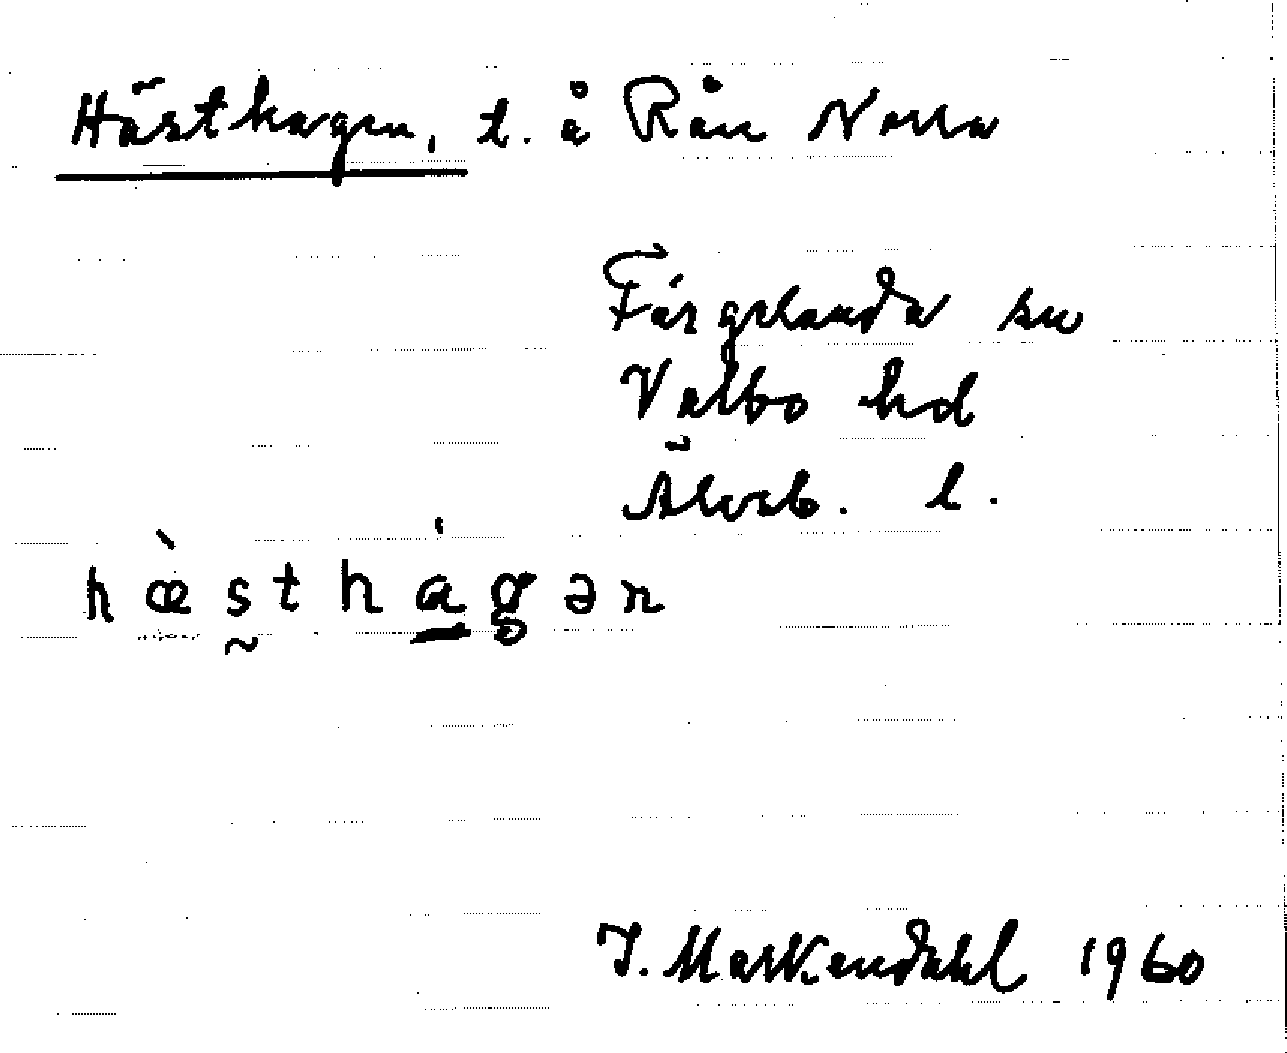 Hästhagen, t. å Rån Norra
Färgelanda sn
Valbo hd
Älvsb. l.
hæ̀sthágən
I. Markendahl 1960